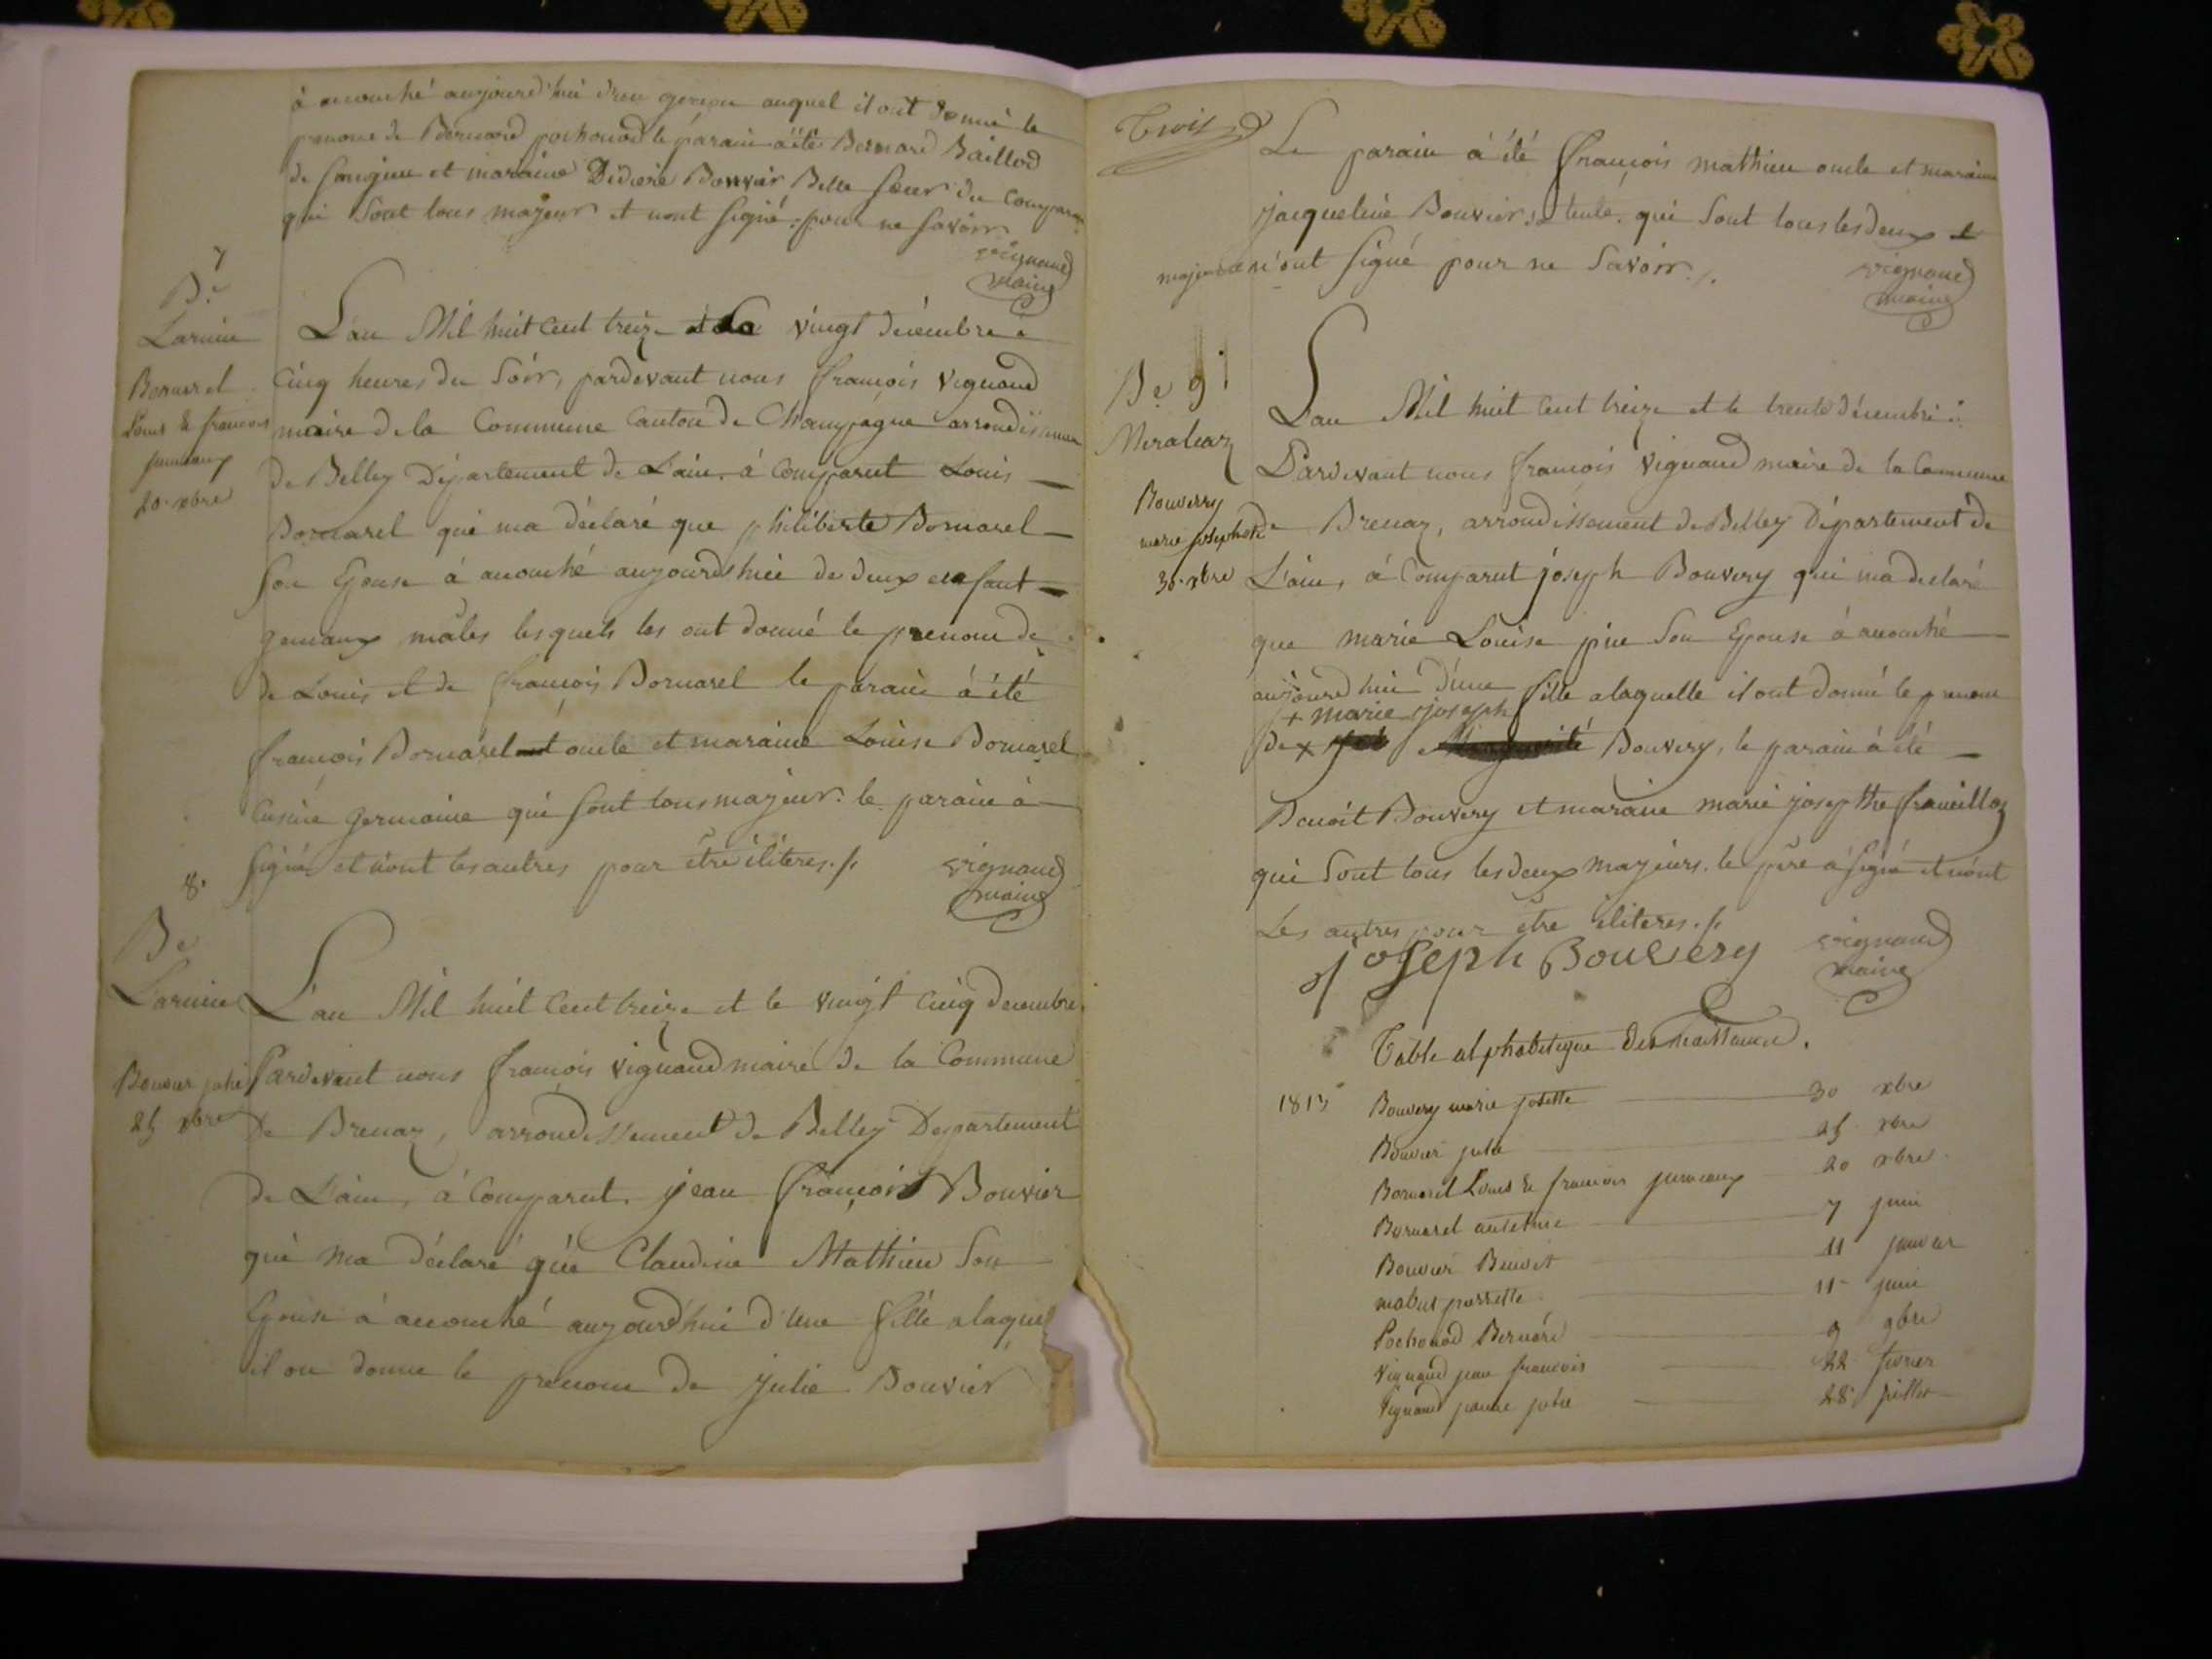 à accouché aujourd'hui d'un garçon auquel il ont donné le
prenom de Bernard pochonod le parain a été Bernard Baillod
de Songieu et maraine Didiere Bouvier Belle sœur du Comparant
qui sont tous majeur et nont signé pour ne savoir
vignaud
maire
7
Be
Larmin
Bornarel
Louis & francois
jumeaux
20 xbre
L'an Mil huit Cent treize et le vingt decembre à
Cinq heures du Soir, pardevant nous françois vignaud
maire de la Commune Canton de Champagne arrondissement
de Belley Département de L'ain à Comparut Louis
Bornarel qui ma déclaré que philiberte Bornarel
Son Epouse à accouché aujourdhui de deux enfant
gemaux mâles lesquels les ont donné le prenom de
de Louis et de françois Bornarel le parain à été
françois Bornarel oncle et maraine Louise Bornarel
Cusine germaine qui sont tous majeur. le parain à
signé et n'ont les autres pour être éliteres ./.
vignaud
maire
8.
Be
Larmin
Bouvier julie
25 xbre
L'an Mil huit Cent treize et le vingt Cinq decembre
Pardevant nous françois vignaud maire de la Commune
de Brenaz, arrondissement de Belley Departement
de L'ain, à Comparut jean françois Bouvier
qui ma déclaré que Claudine Mathieu Son
Epouse à accouché aujourd'hui d'une fille alaquel
il on donne le prenom de julie Bouvier
Trois
Le parain à été françois mathieu oncle et maraine
jacqueline Bouvier sa tente qui sont tous les deux
majeur n'ont signé pour ne Savoir ./.
vignaud
maire
Be 9
Meraleaz
Bouverry
marie josephte
30 xbre
L'an Mil huit Cent treize et le trente décembre
Pardevant nous françois vignaud maire de la Commune
de Brenaz, arrondissement de Belley Département de
L'ain, à Comparut joseph Bouvery qui ma declaré
que marie Louise pin Son Epouse à accouché
aujourd hui d'une fille alaquelle il ont donné le prenom
+ marie joseph
de + Bouvery, le parain à été
Benoit Bouvery et maraine marie josepthe franeilloz
qui sont tous les deux majeurs. le père à signé et n'ont
Les autres pour être éliteres ./.
joseph Bouvery
vignaud
maire
Table alphabetique des naissances.
1813 Bouvery marie josette 30 xbre
Bouvier julie 25 xbre
Bornarel Louis & francois jumeaux 20 xbre
Bornarel antelme 7 juin
Bouvier Benoit 11 janvier
mabut pierrette 11 juin
Pochonod Bernard 9 9bre
vignaud jean francois 22 fevrier
vignaud jeanne julie 28 juillet